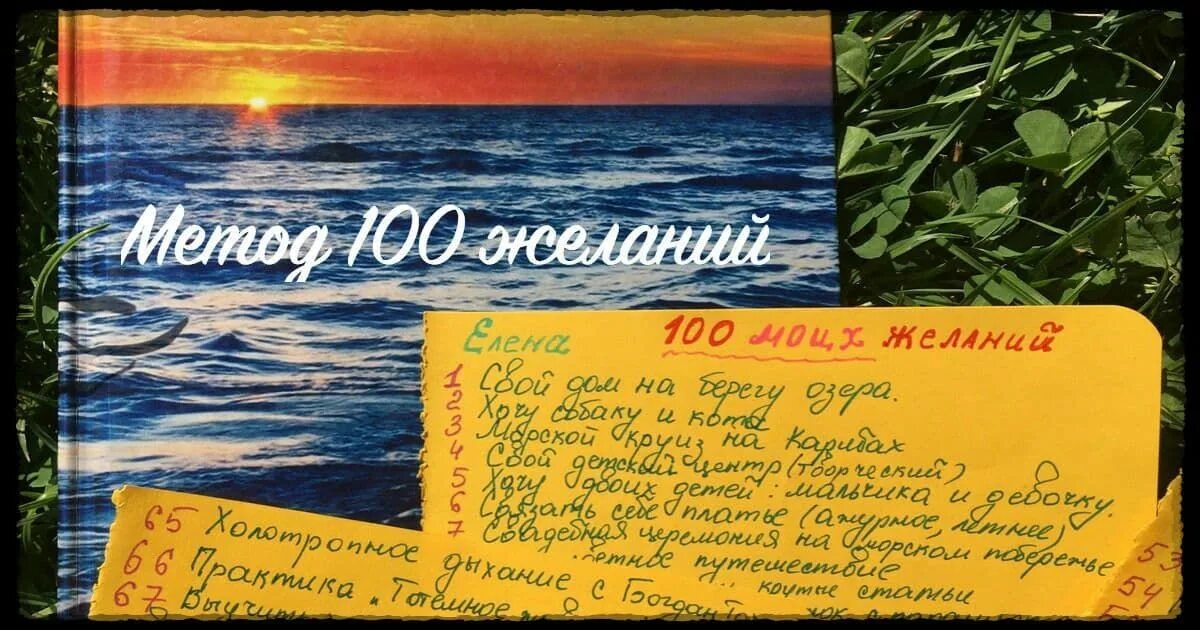 Метод 100 желаний
Елена 100 моих желаний
1 Свой дом на берегу озера.
2 Хочу собаку и кота
3 Морской круиз на Карибах
4 Свой детский центр (творческий)
5 Хочу двоих детей: мальчика и девочку.
6 Связать себе платье (ажурное, летнее)
7 Свадебная церемония на морском побережье
путешествие
крутые статьи
65 Холотропное дыхание с
66 Практика "Тотемное
67
53
54